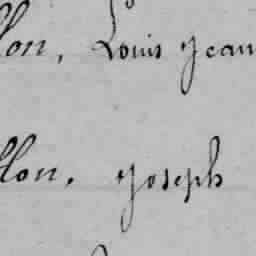 llon, Louis Jean
llon, Joseph